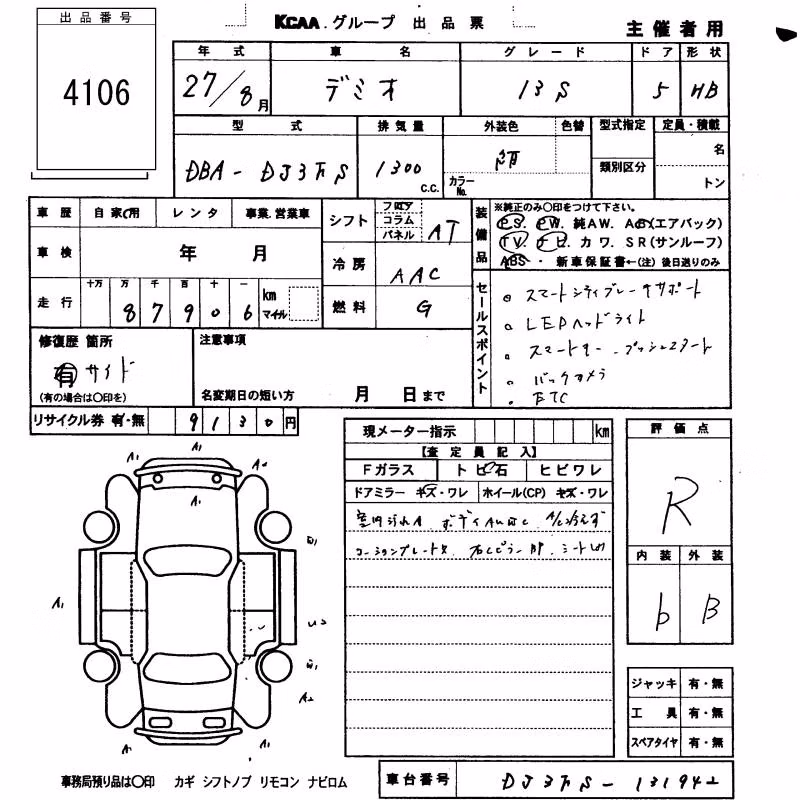 出品番号
4106
KCAA.グループ 出品票
主催者用
年式 車名 グレード ドア 形状
27/8月 デミオ 13S 5 HB
型式 排気量 外装色 色替 型式指定 定員・積載
DBA-DJ3FS 1300 c.c. カラーNo. 類別区分 名
トン
車歴 自家用 レンタ 事業.営業車
車検 年 月
走行 十万 万 千 百 十 一 km マイル
8 7 9 0 6
シフト フロア コラム パネル AT
冷房 AAC
燃料 G
装備品
※純正のみ○印をつけて下さい。
P.S. P.W. 純AW. AB(エアバック)
TV. ナビ. カワ. SR(サンルーフ)
ABS・ 新車保証書←(注)後日送りのみ
セールスポイント
スマートシティブレーキサポート
LEDヘッドライト
スマートキー.プッシュスタート
バックカメラ
ETC
修復歴 箇所
有 サイド
(有の場合は○印を)
注意事項
名変期日の短い方 月 日まで
リサイクル券 有・無 9130円
現メーター指示 km
【査定員記入】
Fガラス トビ石 ヒビワレ
ドアミラー キズ・ワレ ホイール(CP) キズ・ワレ
評価点
R
内装 外装
b B
A1
A1
A2
A1
A1
A1
A2
A1
ジャッキ 有・無
工具 有・無
スペアタイヤ 有・無
事務局預り品は○印 カギ シフトノブ リモコン ナビロム
車台番号 DJ3FS-131942